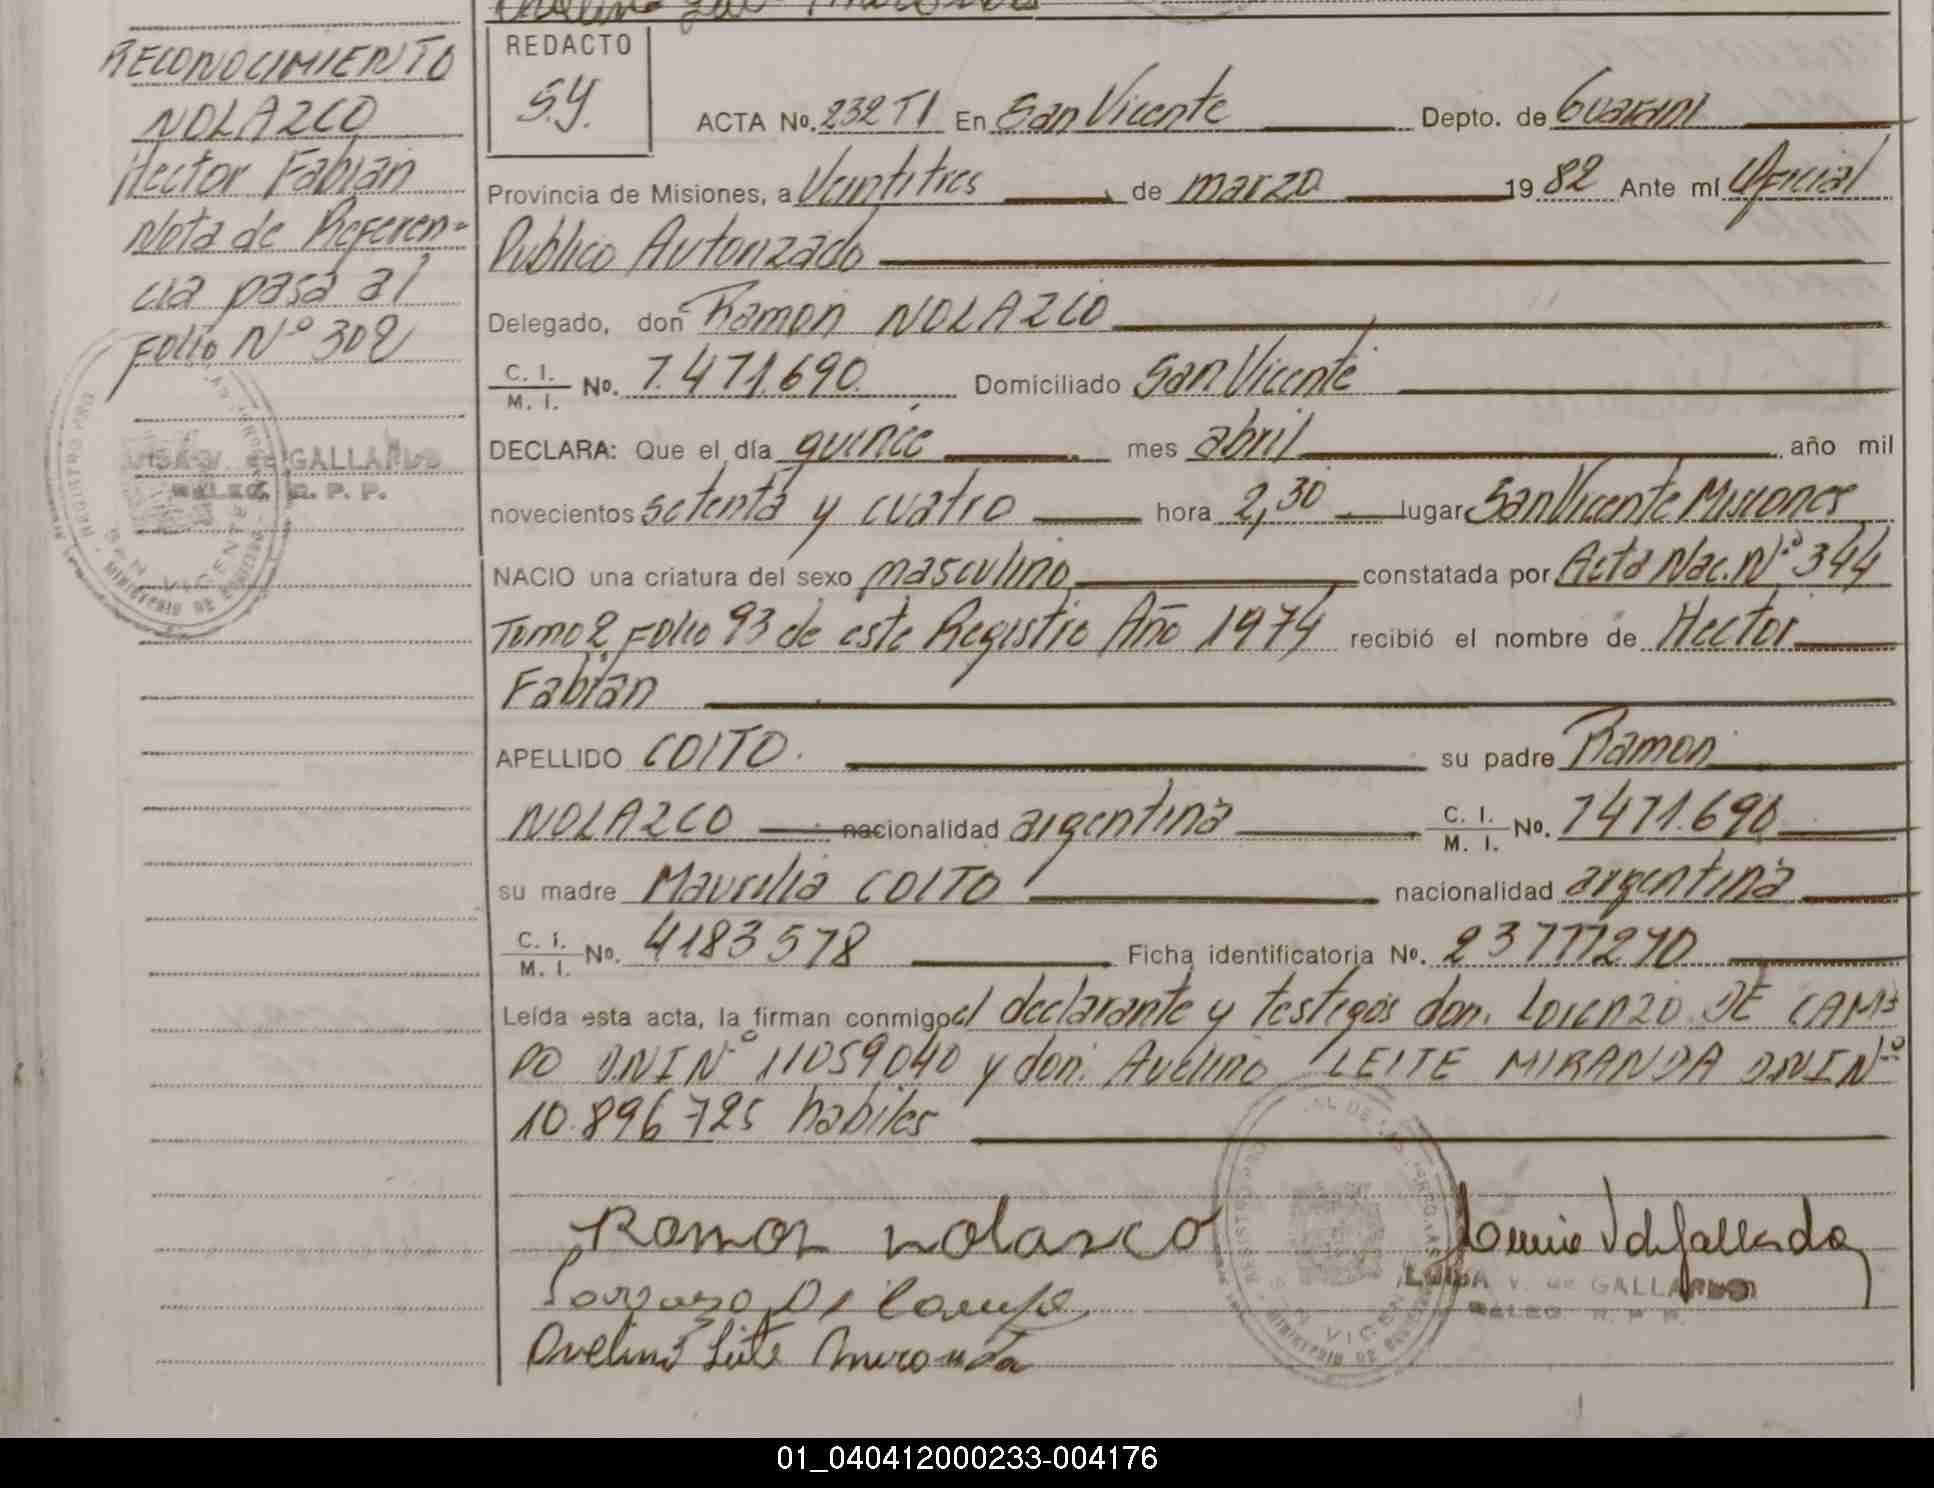 RECONOCIMIENTO
NOLAZCO
Hector Fabian
Nota de Referen-
cia pasa al
Folio Nº 302
GALLARDO
R. P. P.
REDACTO
S.Y.
ACTA No. 232 T1 En San Vicente Depto. de Guarani
Provincia de Misiones, a Veintitres de marzo 19 82 Ante mí Oficial
Publico Autorizado
Delegado, don Ramon NOLAZCO
C. I. / M. I. No. 7.471.690 Domiciliado San Vicente
DECLARA: Que el día quince mes abril año mil
novecientos setenta y cuatro hora 2,30 lugar San Vicente Misiones
NACIO una criatura del sexo masculino constatada por Acta Nac. Nº 344
Tomo 2 Folio 93 de este Registro Año 1974 recibió el nombre de Hector
Fabián
APELLIDO COITO. su padre Ramon
NOLAZCO nacionalidad argentina C. I. / M. I. No. 7471.690
su madre Maurilia COITO nacionalidad argentina
C. I. / M. I. No. 4183578 Ficha identificatoria No. 23777270
Leída esta acta, la firman conmigo el declarante y testigos don. Lorenzo DE CAM-
PO DNI Nº 11059040 y don. Avelino LEITE MIRANDA DNI Nº
10.896725 habiles
Ramon Nolazco
LUISA V. de GALLARDO
R. P. P.
Avelino Leite Miranda
01_040412000233-004176